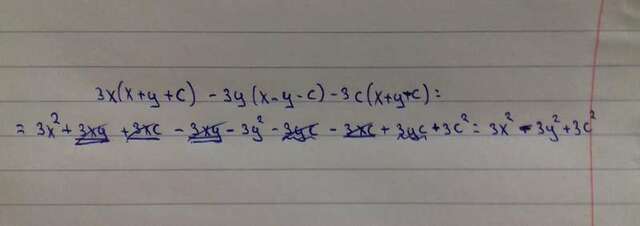 3x(x+y+c) - 3y(x-y-c) - 3c(x+y+c) =
= 3x² + 3xy + 3xc - 3xy - 3y² - 3yc - 3xc + 3yc + 3c² = 3x² - 3y² + 3c²